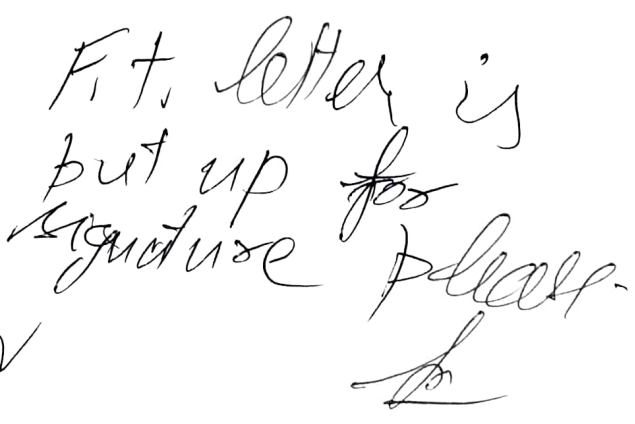 F.t. letter is
put up for
signature please.